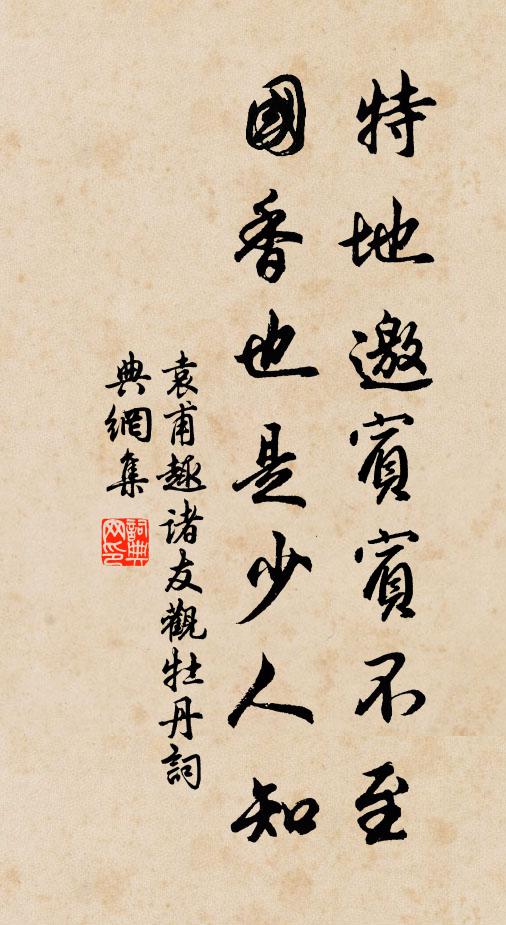 特地邀賓賓不至
國香也是少人知
袁甫趣諸友觀牡丹詞
典網集
詞典
网印